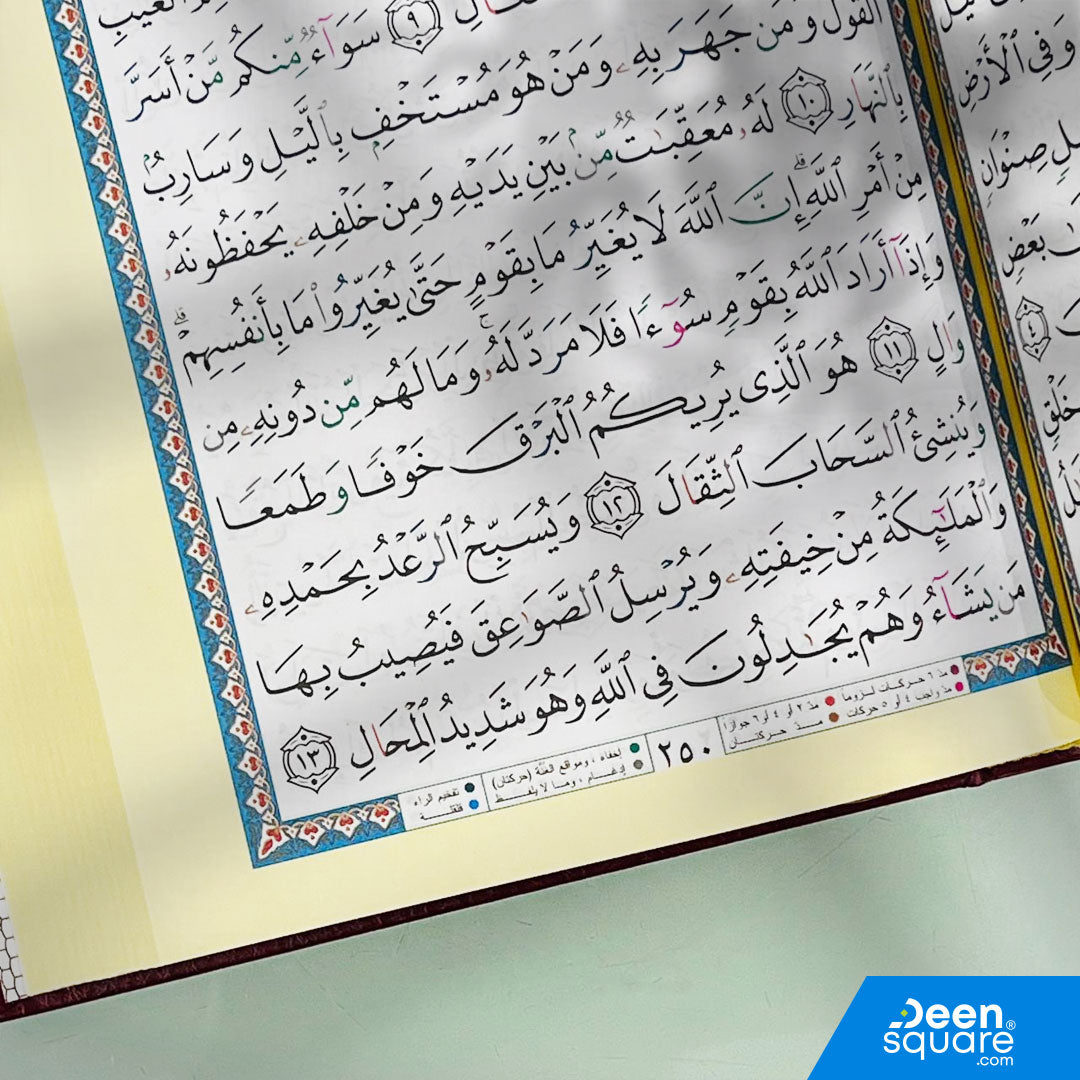 سَوَآءٌ مِّنكُم مَّنْ أَسَرَّ
ٱلْقَوْلَ وَمَن جَهَرَ بِهِۦ وَمَنْ هُوَ مُسْتَخْفٍۭ بِٱلَّيْلِ وَسَارِبٌۢ
بِٱلنَّهَارِ ١٠ لَهُۥ مُعَقِّبَٰتٌ مِّنۢ بَيْنِ يَدَيْهِ وَمِنْ خَلْفِهِۦ يَحْفَظُونَهُۥ
مِنْ أَمْرِ ٱللَّهِ ۗ إِنَّ ٱللَّهَ لَا يُغَيِّرُ مَا بِقَوْمٍ حَتَّىٰ يُغَيِّرُوا۟ مَا بِأَنفُسِهِمْ ۗ
وَإِذَآ أَرَادَ ٱللَّهُ بِقَوْمٍ سُوٓءًا فَلَا مَرَدَّ لَهُۥ ۚ وَمَا لَهُم مِّن دُونِهِۦ مِن
وَالٍ ١١ هُوَ ٱلَّذِى يُرِيكُمُ ٱلْبَرْقَ خَوْفًا وَطَمَعًا
وَيُنشِئُ ٱلسَّحَابَ ٱلثِّقَالَ ١٢ وَيُسَبِّحُ ٱلرَّعْدُ بِحَمْدِهِۦ
وَٱلْمَلَٰٓئِكَةُ مِنْ خِيفَتِهِۦ وَيُرْسِلُ ٱلصَّوَٰعِقَ فَيُصِيبُ بِهَا
مَن يَشَآءُ وَهُمْ يُجَٰدِلُونَ فِى ٱللَّهِ وَهُوَ شَدِيدُ ٱلْمِحَالِ ١٣
مد ٦ حركات لزوماً
مد ٢ أو ٤ أو ٦ جوازاً
مد واجب ٤ أو ٥ حركات
مد حركتان
٢٥٠
إخفاء ، ومواقع الغنّة (حركتان)
إدغام ، وما لا يلفظ
تفخيم الراء
قلقلة
وَفِى ٱلْأَرْضِ
صِنْوَانٍ
بَعْضٍ
٤
خَلْقٍ
Deen
square®
.com